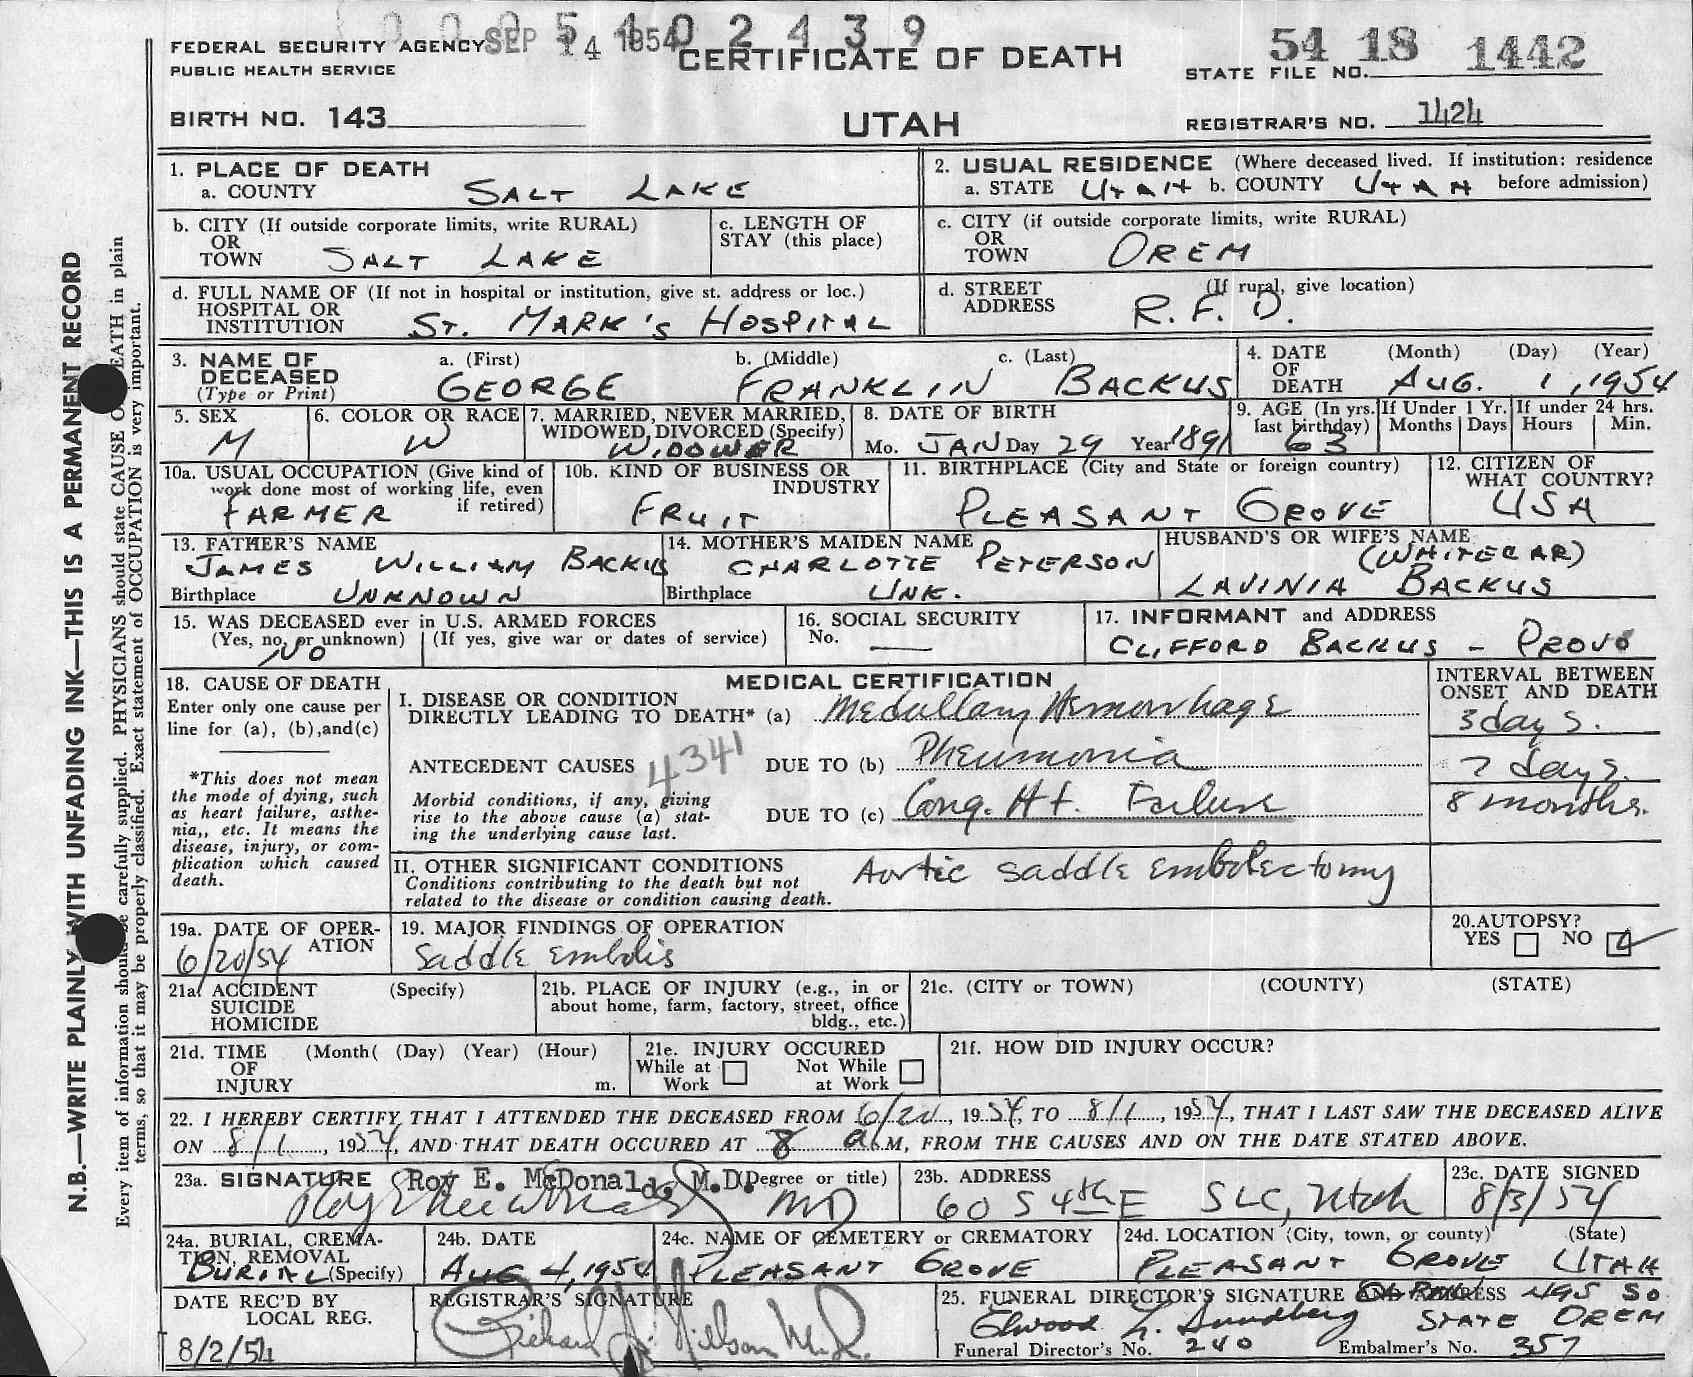 0 0 0 5 4 0 2 4 3 9
FEDERAL SECURITY AGENCY SEP 14 1954 CERTIFICATE OF DEATH 54 18 1442
PUBLIC HEALTH SERVICE STATE FILE NO.
BIRTH NO. 143 UTAH REGISTRAR'S NO. 1424
N.B.—WRITE PLAINLY WITH UNFADING INK—THIS IS A PERMANENT RECORD
Every item of information should be carefully supplied. PHYSICIANS should state CAUSE OF DEATH in plain
terms, so that it may be properly classified. Exact statement of OCCUPATION is very important.
1. PLACE OF DEATH
a. COUNTY SALT LAKE
2. USUAL RESIDENCE (Where deceased lived. If institution: residence
a. STATE UTAH b. COUNTY UTAH before admission)
b. CITY (If outside corporate limits, write RURAL)
OR
TOWN SALT LAKE
c. LENGTH OF
STAY (this place)
c. CITY (if outside corporate limits, write RURAL)
OR
TOWN OREM
d. FULL NAME OF (If not in hospital or institution, give st. address or loc.)
HOSPITAL OR
INSTITUTION ST. MARK'S HOSPITAL
d. STREET (If rural, give location)
ADDRESS R.F.D.
3. NAME OF a. (First) b. (Middle) c. (Last)
DECEASED
(Type or Print) GEORGE FRANKLIN BACKUS
4. DATE (Month) (Day) (Year)
OF
DEATH AUG. 1, 1954
5. SEX
M
6. COLOR OR RACE
W
7. MARRIED, NEVER MARRIED,
WIDOWED, DIVORCED (Specify)
WIDOWER
8. DATE OF BIRTH
Mo. JAN Day 29 Year 1891
9. AGE (In yrs.
last birthday)
63
If Under 1 Yr.
Months Days
If under 24 hrs.
Hours Min.
10a. USUAL OCCUPATION (Give kind of
work done most of working life, even
if retired)
FARMER
10b. KIND OF BUSINESS OR
INDUSTRY
FRUIT
11. BIRTHPLACE (City and State or foreign country)
PLEASANT GROVE
12. CITIZEN OF
WHAT COUNTRY?
USA
13. FATHER'S NAME
JAMES WILLIAM BACKUS
Birthplace UNKNOWN
14. MOTHER'S MAIDEN NAME
CHARLOTTE PETERSON
Birthplace UNK.
HUSBAND'S OR WIFE'S NAME
(WHITECAR)
LAVINIA BACKUS
15. WAS DECEASED ever in U.S. ARMED FORCES
(Yes, no, or unknown) (If yes, give war or dates of service)
NO
16. SOCIAL SECURITY
No. —
17. INFORMANT and ADDRESS
CLIFFORD BACKUS - PROVO
18. CAUSE OF DEATH
Enter only one cause per
line for (a), (b), and (c)
*This does not mean
the mode of dying, such
as heart failure, asthe-
nia,, etc. It means the
disease, injury, or com-
plication which caused
death.
MEDICAL CERTIFICATION
I. DISEASE OR CONDITION
DIRECTLY LEADING TO DEATH* (a) Medullary Hemorrhage
4341
ANTECEDENT CAUSES DUE TO (b) Pneumonia
Morbid conditions, if any, giving
rise to the above cause (a) stat-
ing the underlying cause last.
DUE TO (c) Cong. Ht. Failure
INTERVAL BETWEEN
ONSET AND DEATH
3 days.
7 days.
8 months.
II. OTHER SIGNIFICANT CONDITIONS
Conditions contributing to the death but not
related to the disease or condition causing death.
Aortic saddle embolectomy
19a. DATE OF OPER-
ATION
6/20/54
19. MAJOR FINDINGS OF OPERATION
Saddle embolis
20. AUTOPSY?
YES NO
21a. ACCIDENT (Specify)
SUICIDE
HOMICIDE
21b. PLACE OF INJURY (e.g., in or
about home, farm, factory, street, office
bldg., etc.)
21c. (CITY or TOWN) (COUNTY) (STATE)
21d. TIME (Month( (Day) (Year) (Hour)
OF
INJURY m.
21e. INJURY OCCURED
While at Not While
Work at Work
21f. HOW DID INJURY OCCUR?
22. I HEREBY CERTIFY THAT I ATTENDED THE DECEASED FROM 6/20, 1954, TO 8/1, 1954, THAT I LAST SAW THE DECEASED ALIVE
ON 8/1, 1954, AND THAT DEATH OCCURED AT 8 a M, FROM THE CAUSES AND ON THE DATE STATED ABOVE.
23a. SIGNATURE Roy E. McDonald, M.D. (Degree or title)
MD
23b. ADDRESS
60 S 4th E SLC, Utah
23c. DATE SIGNED
8/3/54
24a. BURIAL, CREMA-
TION, REMOVAL
BURIAL (Specify)
24b. DATE
AUG 4, 1954
24c. NAME OF CEMETERY or CREMATORY
PLEASANT GROVE
24d. LOCATION (City, town, or county) (State)
PLEASANT GROVE UTAH
DATE REC'D BY
LOCAL REG.
8/2/54
REGISTRAR'S SIGNATURE
25. FUNERAL DIRECTOR'S SIGNATURE 495 SO
Elwood L. Sundberg STATE OREM
Funeral Director's No. 240 Embalmer's No. 357